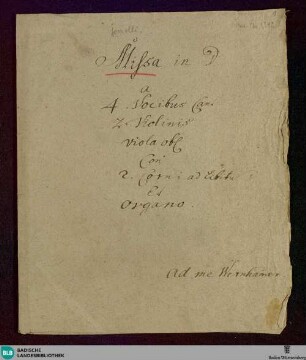 Missa in D
a
4. Vocibus Can:
2. Violinis
Viola obl:
Con
2. Corni ad Libit:
Et
Organo.
Ad me
BLB
BADISCHE
LANDESBIBLIOTHEK